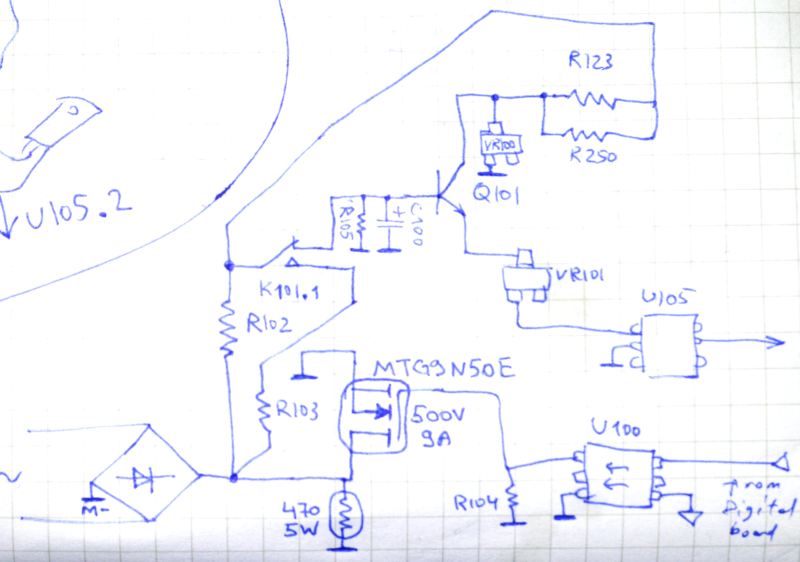 R123
VR100
R250
Q101
U105.2
R105
+
C100
VR101
K101.1
U105
R102
MTG9N50E
R103
500V
9A
U100
~
M-
470
5W
R104
from
Digital
board